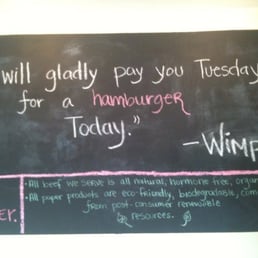 will gladly pay you Tuesday
for a hamburger
Today."
-Wimp
• All beef we serve is all natural, hormone free, organ
• All paper products are eco-friendly, biodegradable, com
er.
from post-consumer renewable
resources.